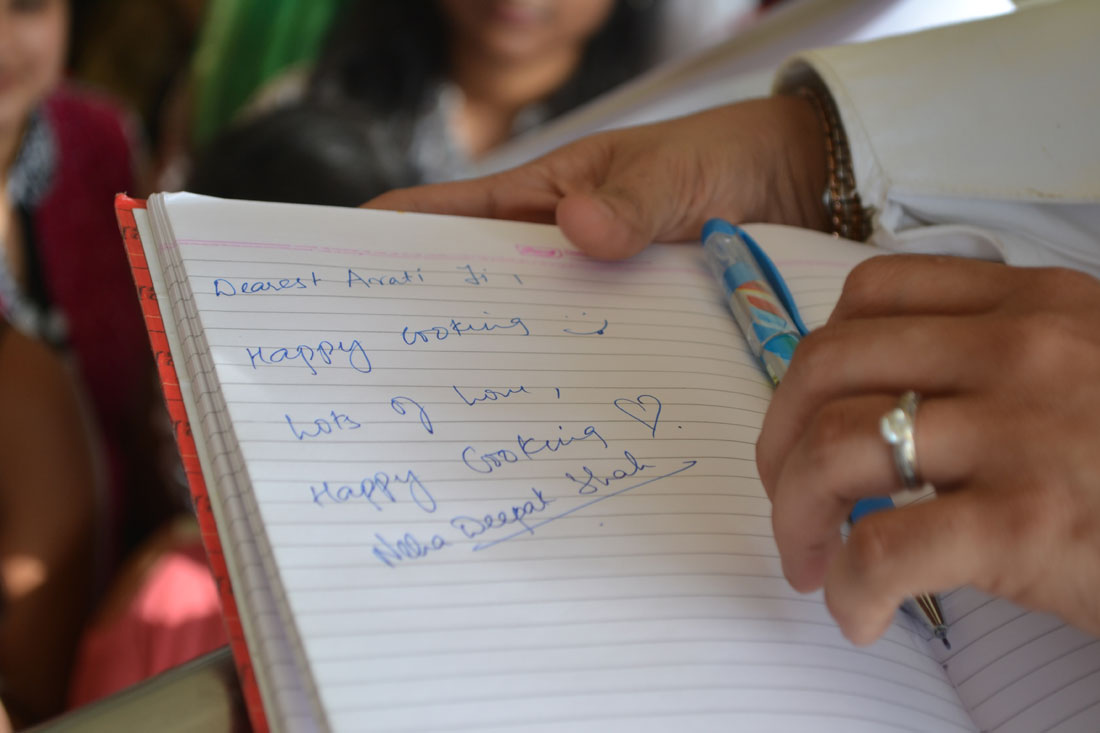 Dearest Arati Ji,
Happy Cooking :)
Lots of love,
Happy Cooking ♡.
Neha Deepak Shah